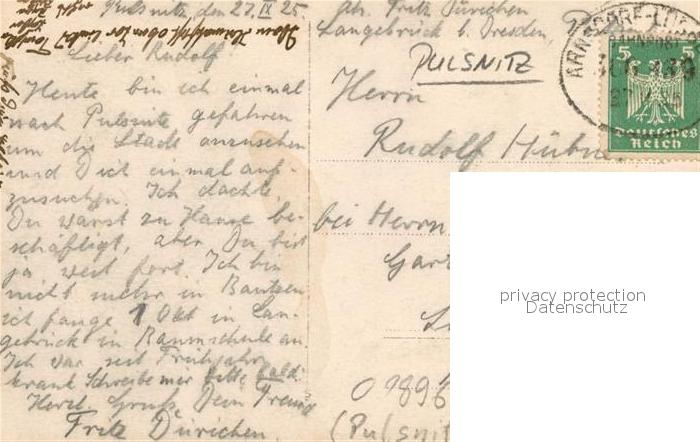 Pulsnitz den 27. IX 25.
Lieber Rudolf
Heute bin ich einmal
nach Pulsnitz gefahren
um die Stadt anzusehen
und Dich einmal auf-
zusuchen. Ich dachte,
Du wärst zu Hause be-
schäftigt, aber Du bist
ja weit fort. Ich bin
nicht mehr in Bautzen
ich fange 1 Okt in Lan-
gebrück in Baumschule an
Ich war seit Frühjahr
krank Schreibe mir bitte bald
Herzl. Gruß Dein Freund
Fritz Dürichen.
Abs. Fritz Dürichen
Langebrück b. Dresden,
PULSNITZ
Herrn
Rudolf Hübn
bei Herrn
Gart
09896
(Pulsnit
5 5
Deutsches
Reich
privacy protection
Datenschutz